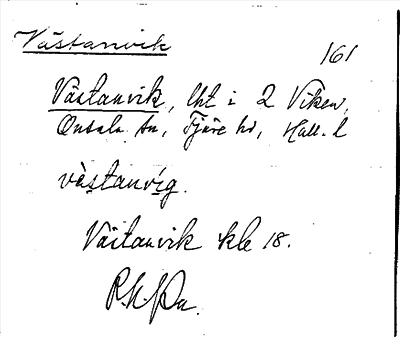 Västanvik
161
Västanvik, lht i 2 Viken,
Onsala sn, Fjäre hd, Hall. l
västanvig.
Västanvik kbl 18.